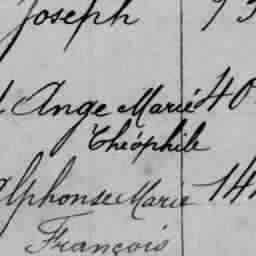 Joseph 93
Ange Marie 40
Théophile
Alphonse Marie 14
François